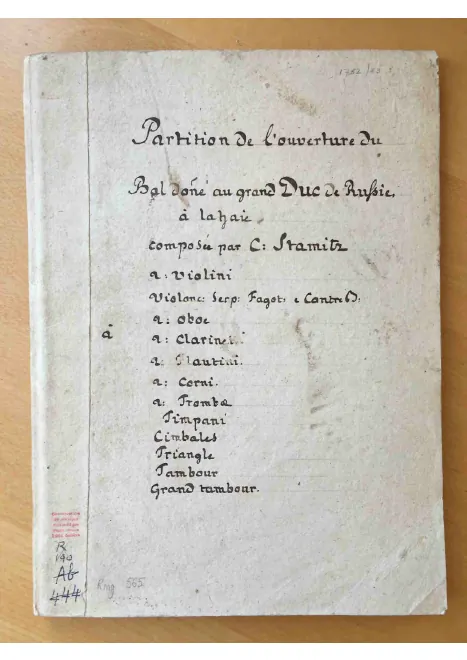 1382/80
Partition de l'ouverture du
Bal doñé au grand Duc de Russie.
à lahaie
composée par C: Stamitz
2: violini
Violonc: Serp: Fagot: e ContreB:
2: oboe
à
2: Clarinetti
2: Flautini.
2: Corni.
2: Trombe
Timpani
Cimbales
Triangle
Tambour
Grand tambour.
R
190
Ab
444
Rmg 565